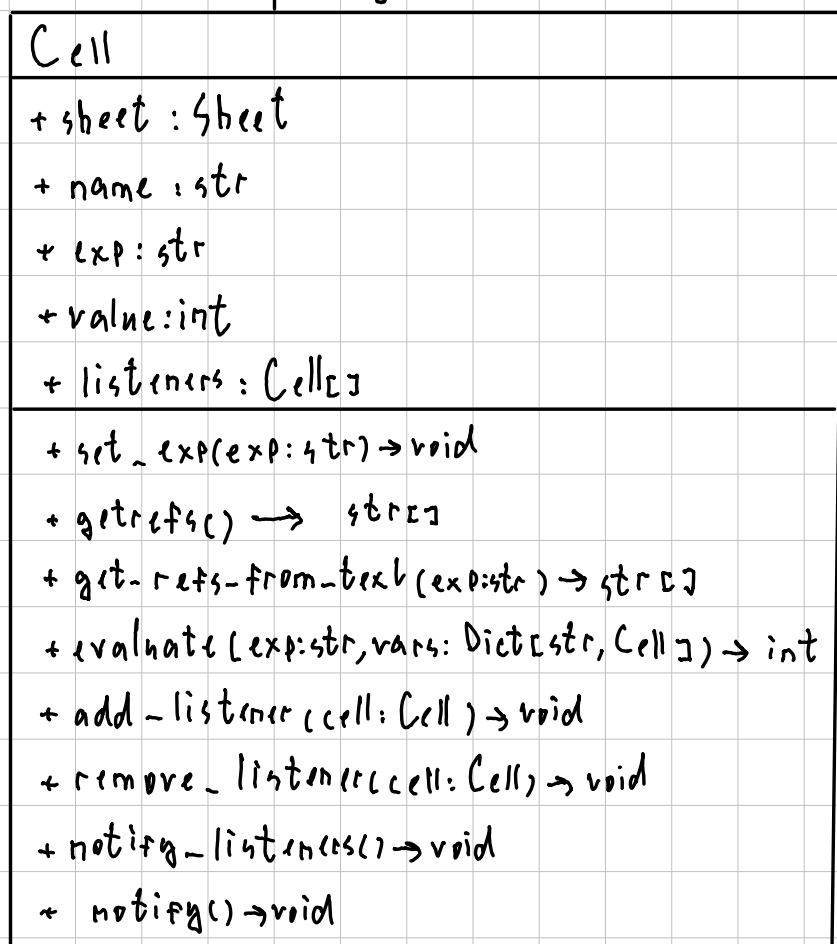 Cell
+ sheet : Sheet
+ name : str
+ exp : str
+ value : int
+ listeners : Cell[]
+ set_exp(exp: str) → void
+ getrefs() → str[]
+ get_refs_from_text(exp:str) → str[]
+ evaluate(exp:str, vars: Dict[str, Cell]) → int
+ add_listener(cell: Cell) → void
+ remove_listener(cell: Cell) → void
+ notify_listeners() → void
+ notify() → void